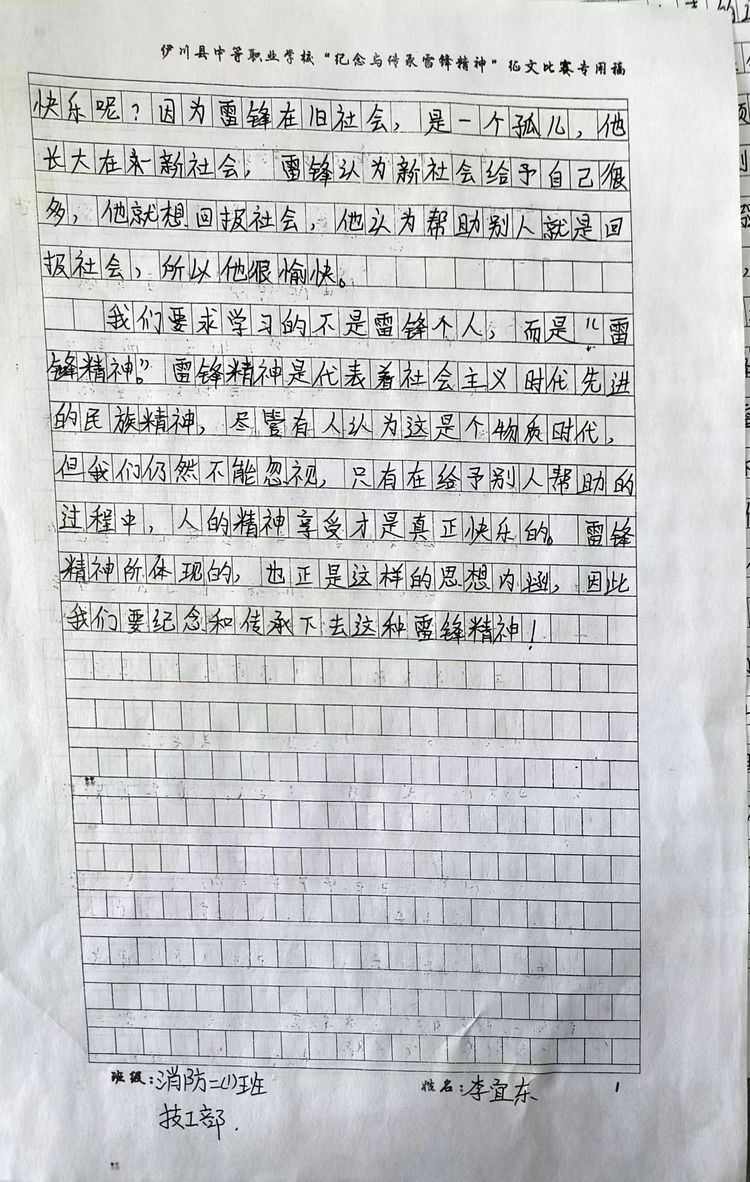 伊川县中等职业学校“纪念与传承雷锋精神”征文比赛专用稿
快乐呢？因为雷锋在旧社会，是一个孤儿，他
长大在新社会，雷锋认为新社会给予自己很
多，他就想回报社会，他认为帮助别人就是回
报社会，所以他很愉快。
我们要求学习的不是雷锋个人，而是“雷
锋精神”。雷锋精神是代表着社会主义时代先进
的民族精神，尽管有人认为这是个物质时代，
但我们仍然不能忽视，只有在给予别人帮助的
过程中，人的精神享受才是真正快乐的。雷锋
精神所体现的，也正是这样的思想内涵，因此
我们要纪念和传承下去这种雷锋精神！
班级：消防二(1)班
姓名：李宜东
1
技工部.